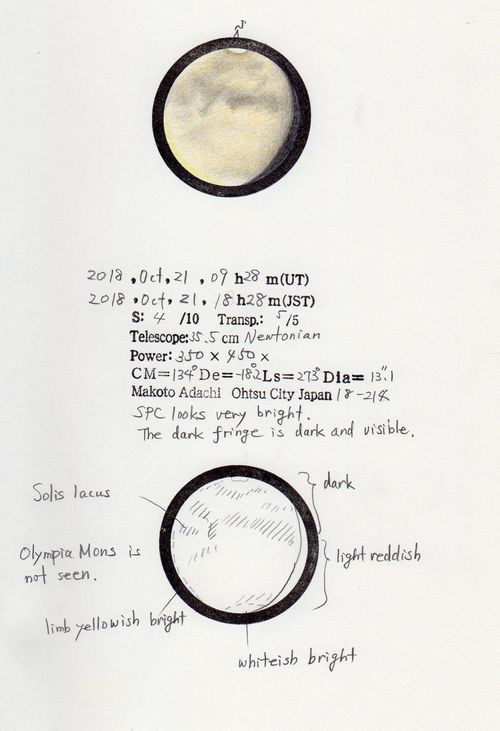 2018, Oct, 21, 09 h28 m(UT)
2018, Oct, 21, 18 h28 m(JST)
S: 4 /10 Transp.: 5/5
Telescope:35.5 cm Newtonian
Power: 350 × 450 ×
CM=134° De=-18.2 Ls=273° Dia= 13".1
Makoto Adachi Ohtsu City Japan 18-214
SPC looks very bright.
The dark fringe is dark and visible.
Solis lacus
dark
Olympia Mons is
not seen.
light reddish
limb yellowish bright
whiteish bright